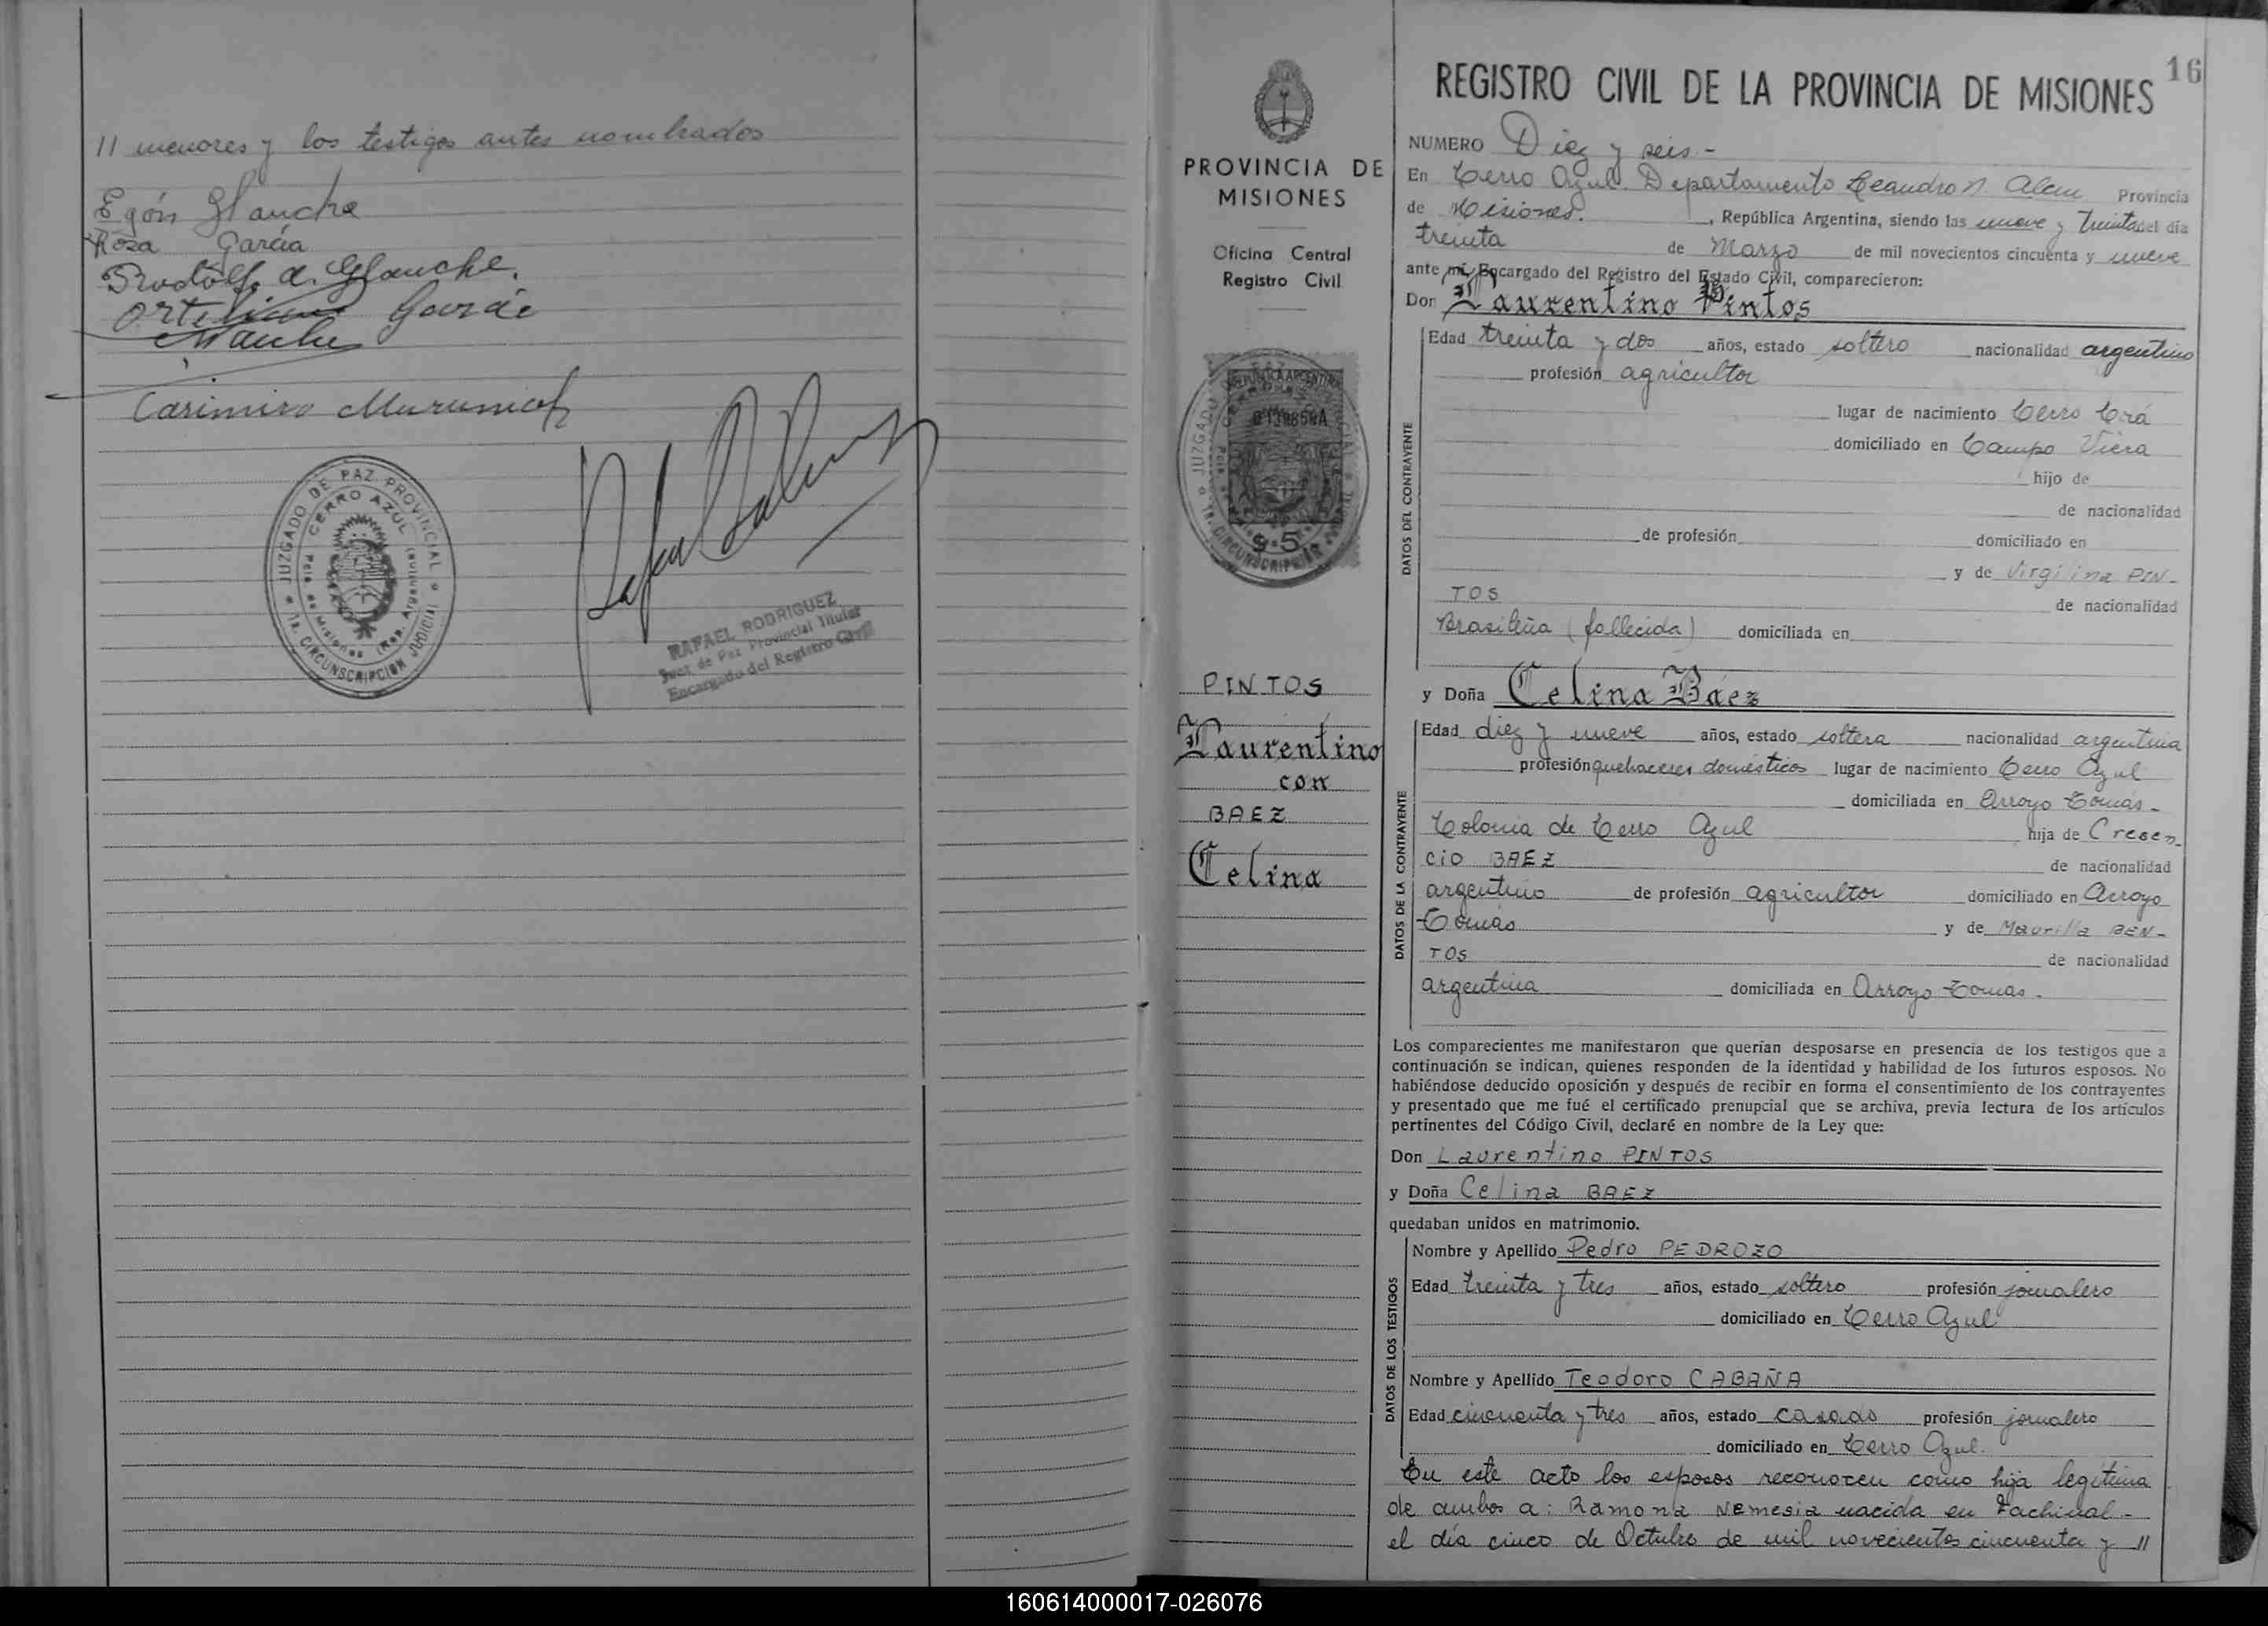 11 menores y los testigos antes nombrados
Egón Glanche
Rosa García
Rodolfo A. Glanche.
García
Casimiro
JUZGADO DE PAZ PROVINCIAL
CERRO AZUL
Pcia. de Misiones (Rep. Argentina)
1a. CIRCUNSCRIPCION JUDICIAL
RAFAEL RODRIGUEZ
Juez de Paz Provincial Titular
Encargado del Registro Civil
PROVINCIA DE
MISIONES
Oficina Central
Registro Civil
REPUBLICA ARGENTINA
$ 5
PINTOS
Laurentino
con
BAEZ
Celina
16
REGISTRO CIVIL DE LA PROVINCIA DE MISIONES
NUMERO Diez y seis.-
En Cerro Azul. Departamento Leandro N. Alem Provincia
de Misiones. , República Argentina, siendo las nueve y treinta del día
treinta de Marzo de mil novecientos cincuenta y nueve
ante mí, Encargado del Registro del Estado Civil, comparecieron:
Don Laurentino Pintos
DATOS DEL CONTRAYENTE
Edad treinta y dos años, estado soltero nacionalidad argentino
profesión agricultor
lugar de nacimiento Cerro Corá
domiciliado en Campo Viera
hijo de
de nacionalidad
de profesión domiciliado en
y de Virgilina PIN-
TOS de nacionalidad
Brasileña (fallecida) domiciliada en
y Doña Celina Báez
DATOS DE LA CONTRAYENTE
Edad diez y nueve años, estado soltera nacionalidad argentina
profesión quehaceres domésticos lugar de nacimiento Cerro Azul
domiciliada en Arroyo Tomás-
Colonia de Cerro Azul hija de Cresen-
cio BAEZ de nacionalidad
argentino de profesión agricultor domiciliado en Arroyo
Tomás y de Maurilla BEN-
TOS de nacionalidad
argentina domiciliada en Arroyo Tomás.
Los comparecientes me manifestaron que querían desposarse en presencia de los testigos que a
continuación se indican, quienes responden de la identidad y habilidad de los futuros esposos. No
habiéndose deducido oposición y después de recibir en forma el consentimiento de los contrayentes
y presentado que me fué el certificado prenupcial que se archiva, previa lectura de los artículos
pertinentes del Código Civil, declaré en nombre de la Ley que:
Don Laurentino PINTOS
y Doña Celina BAEZ
quedaban unidos en matrimonio.
DATOS DE LOS TESTIGOS
Nombre y Apellido Pedro PEDROZO
Edad treinta y tres años, estado soltero profesión jornalero
domiciliado en Cerro Azul
Nombre y Apellido Teodoro CABAÑA
Edad cincuenta y tres años, estado casado profesión jornalero
domiciliado en Cerro Azul.
En este acto los esposos reconocen como hija legítima
de ambos a: Ramona Nemesia nacida en Pachinal-
el día cinco de Octubre de mil novecientos cincuenta y 11
160614000017-026076